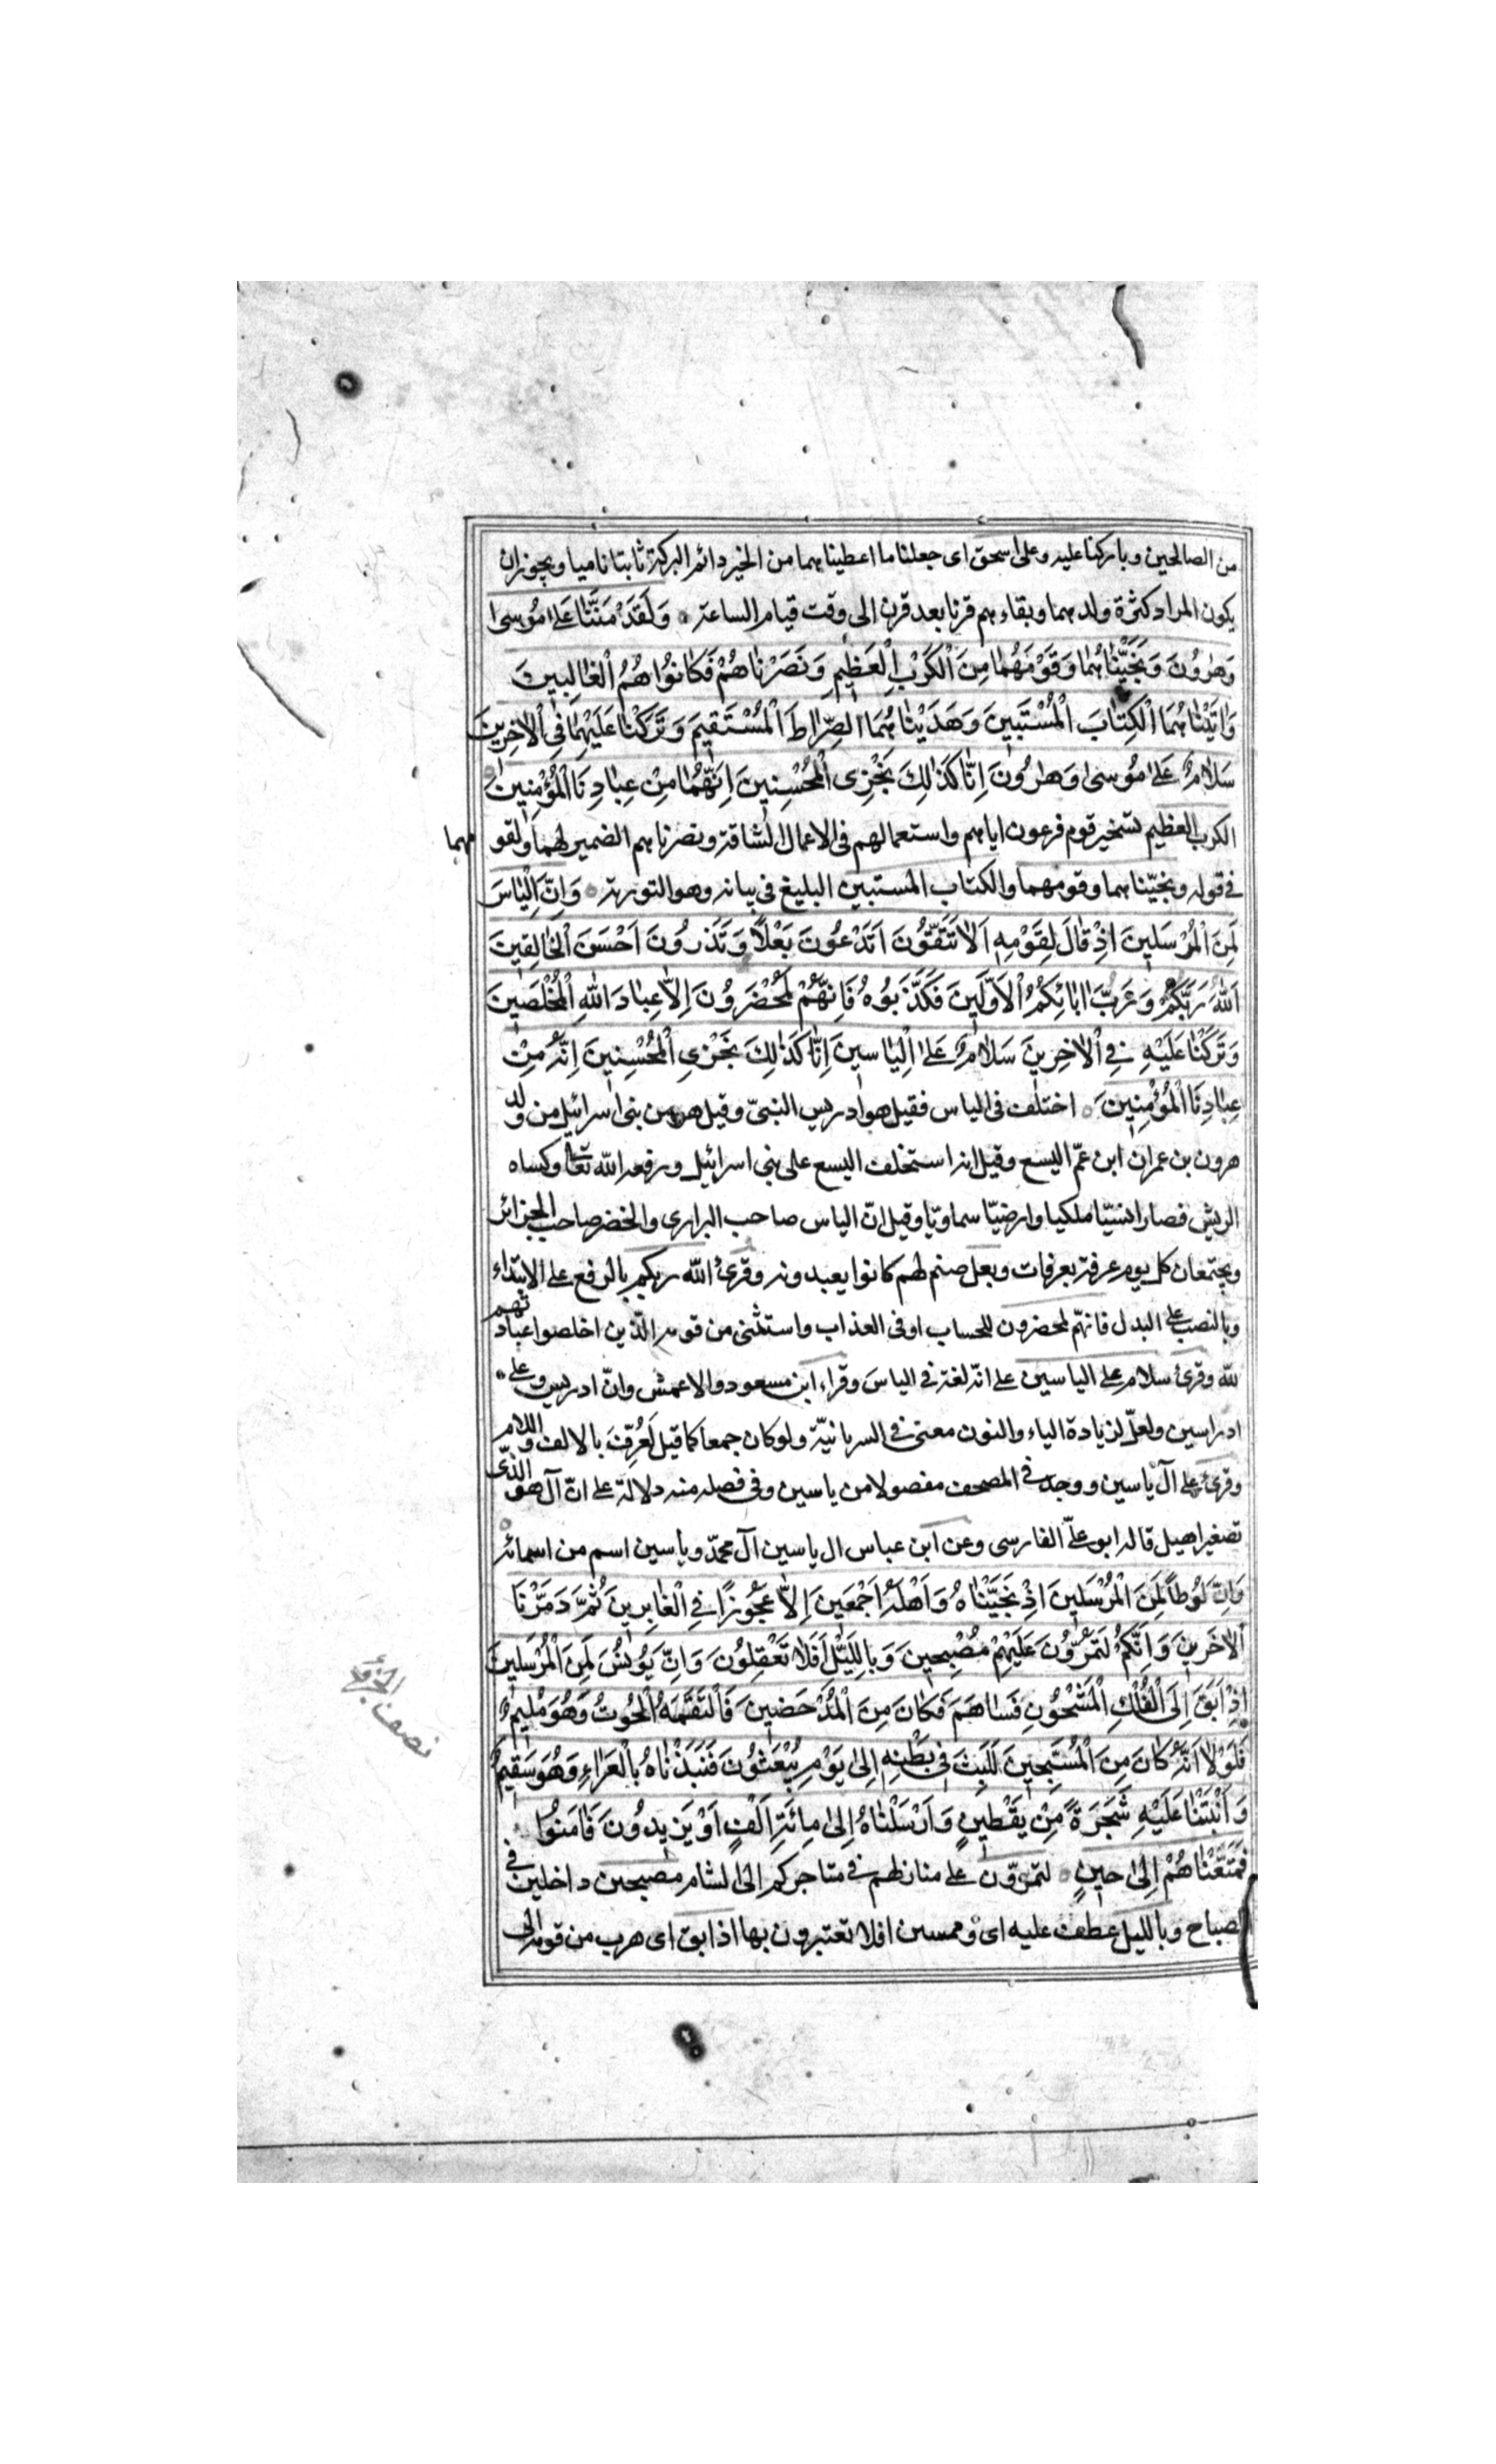 من الصالحين وباركنا عليه وعلى اسحق اى جعلنا ما اعطيناهما من الخير دائم البركة ثابتا ناميا ويجوز ان
يكون المراد كثرة ولدهما وبقاءهم قرنا بعد قرن الى وقت قيام الساعة ٥ وَلَقَدْ مَنَنَّا عَلىٰ مُوسىٰ
وَهٰرُونَ وَنَجَّيْنٰاهُمٰا وَقَوْمَهُمٰا مِنَ الْكَرْبِ الْعَظِيمِ وَنَصَرْنٰاهُمْ فَكٰانُوا هُمُ الْغٰالِبِينَ
وَاٰتَيْنٰاهُمَا الْكِتٰابَ الْمُسْتَبِينَ وَهَدَيْنٰاهُمَا الصِّرٰاطَ الْمُسْتَقِيمَ وَتَرَكْنٰا عَلَيْهِمٰا فِى الْاٰخِرِينَ
سَلٰامٌ عَلىٰ مُوسىٰ وَهٰرُونَ اِنّٰا كَذٰلِكَ نَجْزِى الْمُحْسِنِينَ اِنَّهُمٰا مِنْ عِبٰادِنَا الْمُؤْمِنِينَ ٥
الكرب العظيم تسخير قوم فرعون اياهم واستعمالهم فى الاعمال الشاقة ونصرناهم الضمير لهما ولقومهما
فى قوله ونجّيناهما وقومهما والكتاب المستبين البليغ فى بيانه وهو التورية ٥ وَاِنَّ اِلْيٰاسَ
لَمِنَ الْمُرْسَلِينَ اِذْ قٰالَ لِقَوْمِهِ اَلٰا تَتَّقُونَ اَتَدْعُونَ بَعْلاً وَتَذَرُونَ اَحْسَنَ الْخٰالِقِينَ
اَللّٰهُ رَبُّكُمْ وَرَبُّ اٰبٰائِكُمُ الْاَوَّلِينَ فَكَذَّبُوهُ فَاِنَّهُمْ لَمُحْضَرُونَ اِلّٰا عِبٰادَ اللّٰهِ الْمُخْلَصِينَ
وَتَرَكْنٰا عَلَيْهِ فِى الْاٰخِرِينَ سَلٰامٌ عَلىٰ اِلْيٰاسِينَ اِنّٰا كَذٰلِكَ نَجْزِى الْمُحْسِنِينَ اِنَّهُ مِنْ
عِبٰادِنَا الْمُؤْمِنِينَ ٥ اختلف فى الياس فقيل هو ادريس النبىّ وقيل هو من بنى اسرائيل من ولد
هرون بن عمران ابن عمّ اليسع وقيل انه استخلف اليسع على بنى اسرائيل ورفعه اللّه تعا وكساه
الريش فصار انسيّا ملكيا وارضيّا سماويّا وقيل انّ الياس صاحب البرارى والخضر صاحب الجزائر
ويجتمعان كل يوم عرفة بعرفات وبعل صنم لهم كانوا يعبدونه وقرئ اللّه ربكم بالرفع على الابتداء
وبالنصب على البدل فانهّم لمحضرون للحساب او فى العذاب واستثنى من قومه الّذين اخلصوا عبادتهم
للّه وقرئ سلام على الياسين على انّه لغة فى الياس وقراء ابن مسعود والاعمش وانّ ادريس وعلى
ادراسين ولعلّ لزيادة الياء والنون معنى فى السريانيّة ولو كان جمعا كما قيل لَعُرِّفَ بالالف واللام
وقرئ على آل ياسين ووجد فى المصحف مفصولا من ياسين وفى فصله منه دلالة على انّ آل هو الذّى
تصغير اهيل قاله ابو علىّ الفارسى وعن ابن عباس ال ياسين آل محمّد وياسين اسم من اسمائه ٥
وَاِنَّ لُوطاً لَمِنَ الْمُرْسَلِينَ اِذْ نَجَّيْنٰاهُ وَاَهْلَهُ اَجْمَعِينَ اِلّٰا عَجُوزًا فِى الْغٰابِرِينَ ثُمَّ دَمَّرْنَا
الْاٰخَرِينَ وَاِنَّكُمْ لَتَمُرُّونَ عَلَيْهِمْ مُصْبِحِينَ وَبِاللَّيْلِ اَفَلٰا تَعْقِلُونَ وَاِنَّ يُونُسَ لَمِنَ الْمُرْسَلِينَ
اِذْ اَبَقَ اِلَى الْفُلْكِ الْمَشْحُونِ فَسٰاهَمَ فَكٰانَ مِنَ الْمُدْحَضِينَ فَالْتَقَمَهُ الْحُوتُ وَهُوَ مُلِيمٌ
فَلَوْلٰا اَنَّهُ كٰانَ مِنَ الْمُسَبِّحِينَ لَلَبِثَ فِى بَطْنِهِ اِلىٰ يَوْمِ يُبْعَثُونَ فَنَبَذْنٰاهُ بِالْعَرٰاءِ وَهُوَ سَقِيمٌ
وَاَنْبَتْنٰا عَلَيْهِ شَجَرَةً مِنْ يَقْطِينٍ وَاَرْسَلْنٰاهُ اِلىٰ مِائَةِ اَلْفٍ اَوْ يَزِيدُونَ فَاٰمَنُوا
فَمَتَّعْنٰاهُمْ اِلىٰ حِينٍ ٥ لتمرّون على منازلهم فى متاجركم الى الشام مصبحين داخلين فى
الصباح وبالليل عطف عليه اى وممسين افلا تعتبرون بها اذ ابق اى هرب من قومه الى
نصف الجزء